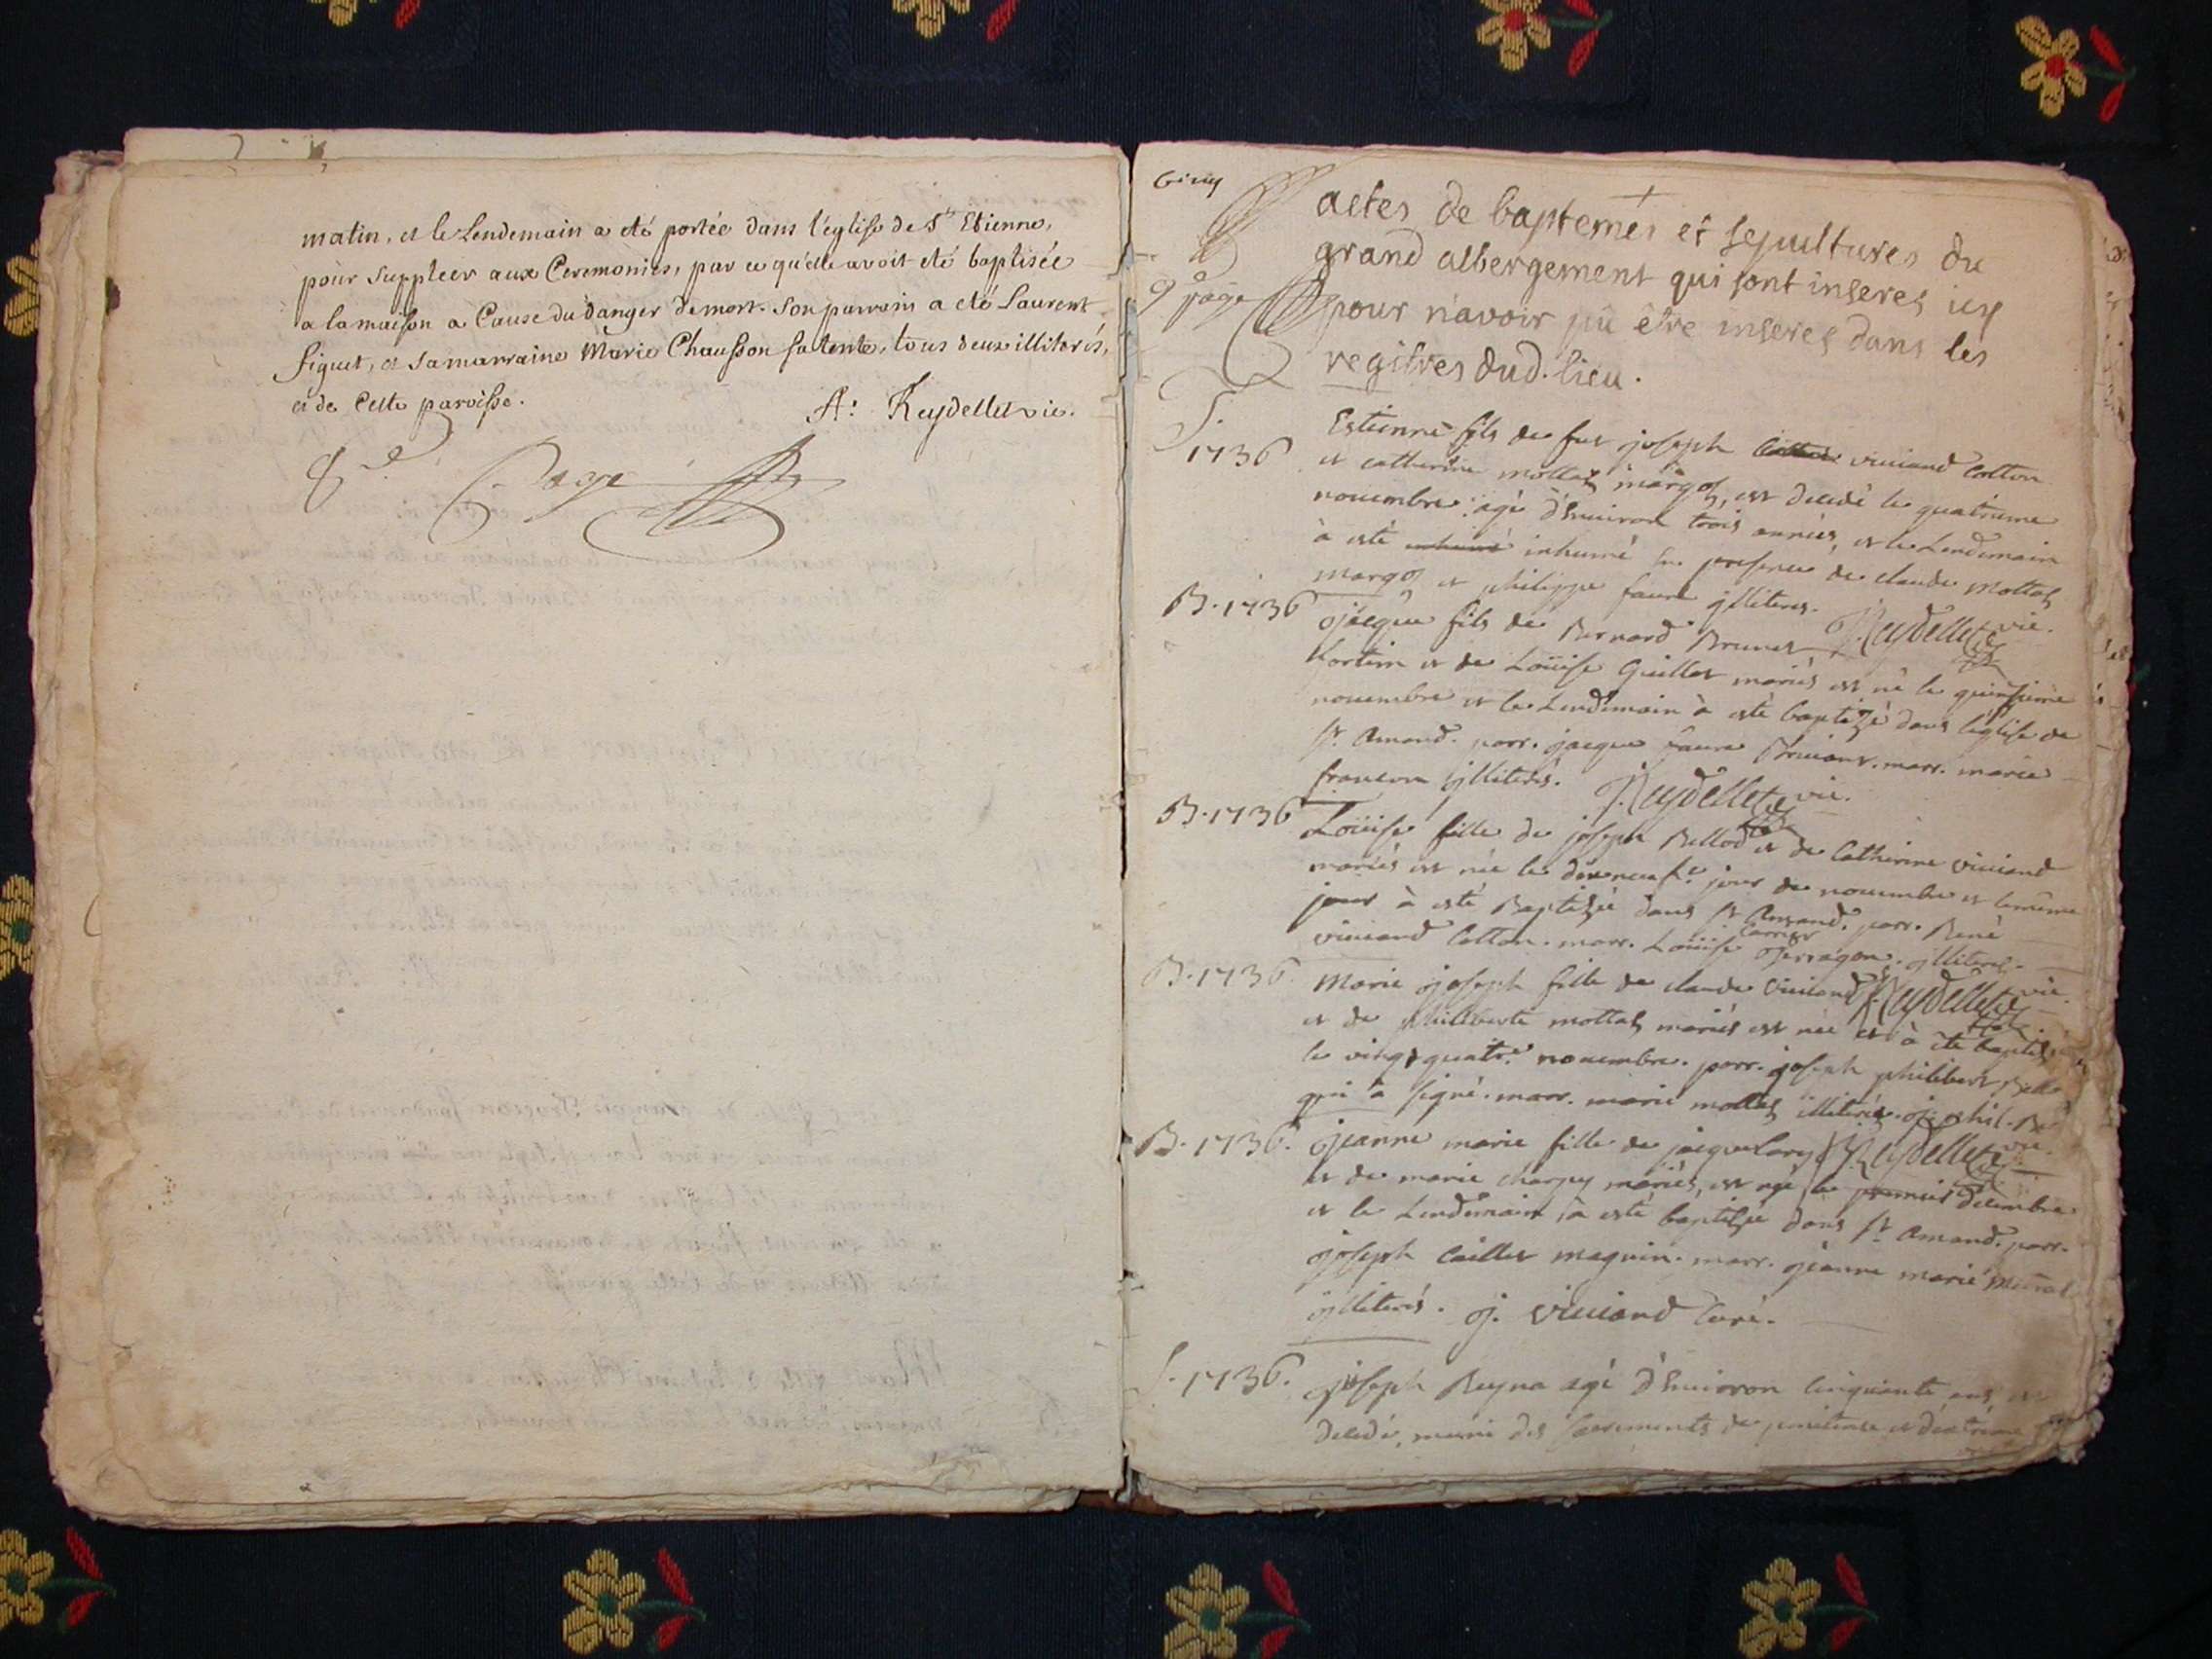 matin, et le Lendemain a eté portée dans l'église de St Etienne,
pour suppleer aux Ceremonies, par ce qu'elle avoit eté baptisée
a la maison a Cause du danger de mort. Son parrain a eté Laurent
figuet, et sa marraine Marie Chausson sa tente, tous deux illiterés,
et de Cette paroisse.
A: Reydellet vic.
8e Page
9e page
actes de baptemes et sepultures du
grand albergement qui sont inseres icy
pour n'avoir pû être inseres dans les
regitres dud. lieu.
S. 1736
Estienne fils de feu joseph viviand Cotton
et catherine mottas margos, est decedé le quatrieme
novembre agé d'environ trois années, et le Lendemain
à esté inhumé en presence de claude mottas
margos et philippe faure jlliteres. Reydellet vic.
B. 1736
jacque fils de Bernard Brunet
fortin et de Loüise Guillot mariés est né le quinsieme
novembre et le Lendemain à esté baptizé dans l'église de
st. Amand. parr. jacque faure marr. marie
jlliterés. Reydellet vic.
B. 1736
Loüise fille de joseph Bellod et de Catherine viviand
mariés est née le dixneufe. jour de novembre et le même
jour à esté Baptizée dans st Amand. parr. René
viviand Cotton. marr. Loüise Carrier jlliteres.
Reydellet vic.
B. 1736
Marie joseph fille de claude viviand
et de philiberte mottas mariés est née et à été baptizée
le vingt quatre. novembre. parr. joseph philibert
qui à signé. marr. marie mottas illiterée. j. phil.
Reydellet vic.
B. 1736.
jeanne marie fille de jacque
et de marie charpy mariés, est née le premier decembre
et le Lendemain à esté baptizée dans st Amand. parr.
joseph Caillet magnin. marr. jeanne marie
jlliterés. j. viviand Curé.
S. 1736.
joseph Reyna agé d'environ cinquante ans est
decedé, muni des sacrements de penitence et d'extreme